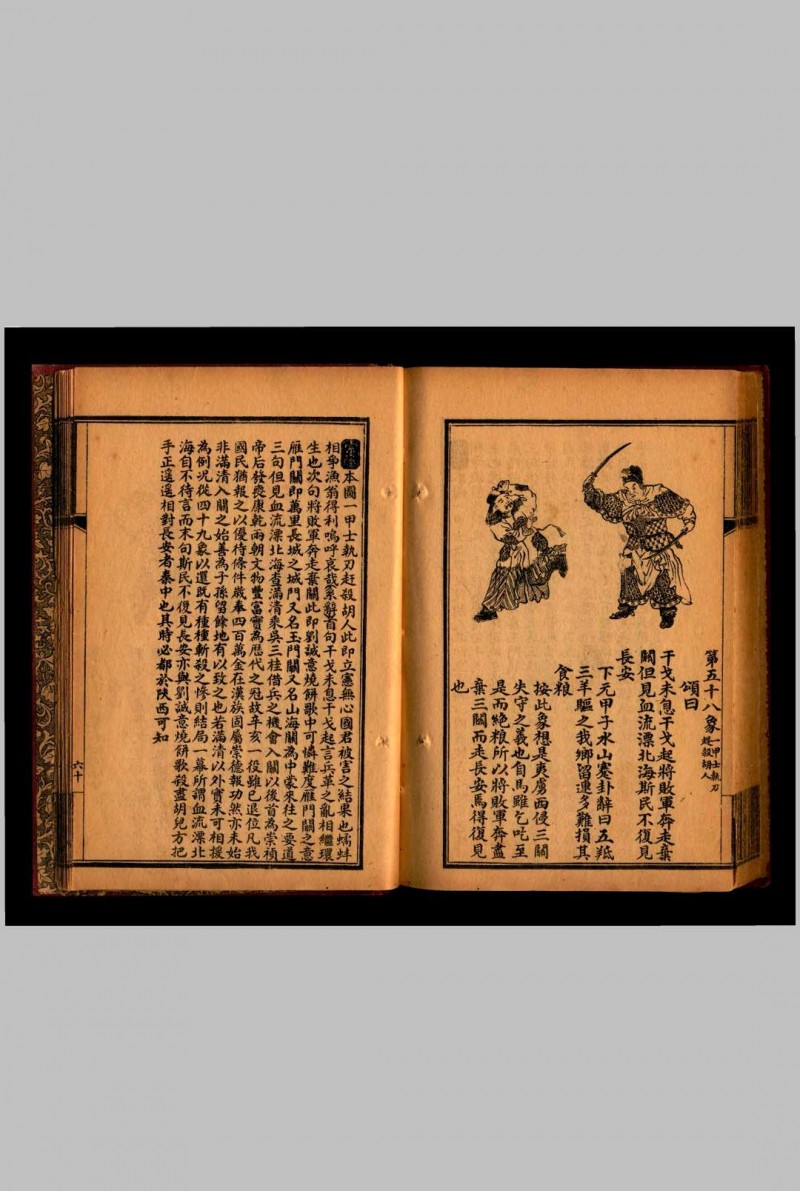 第五十八象一甲士執刃
趕殺胡人
頌曰
干戈未息干戈起將敗軍奔走棄
關但見血流漂北海斯民不復見
長安
下元甲子水山蹇卦辭曰五羝
三羊驅之我鄉留連多難損其
食粮
按此象想是夷虜西侵三關
失守之義也自馬雖乞吃至
是而絕粮所以將敗軍奔盡
棄三關而走長安焉得復見
也
本圖一甲士執刃赶殺胡人此即立憲無心國君被害之結果也蠕蚌
相爭漁翁得利嗚呼哀哉系辭首句干戈未息干戈起言兵革之亂相繼環
生也次句將敗軍奔走棄關此即劉誠意燒餅歌中可憐難度雁門關之意
雁門關即萬里長城之城門又名玉門關又名山海關為中蒙來往之要道
三句但見血流漂北海查滿清乘吳三桂借兵之機會入關以後首為崇禎
帝后發喪康乾兩朝文物豐富實為歷代之冠故辛亥一役雖已退位凡我
國民猶報之以優待條件歲奉四百萬金在漢族固屬崇德報功然亦未始
非滿清入關之始善為子孫留餘地有以致之也若滿清以外實未可相援
為例况從四十九象以還既有種種斬殺之慘則結局一幕所謂血流漂北
海自不待言而末句斯民不復見長安亦與劉誠意燒餅歌殺盡胡兒方把
手正遥遥相對長安者秦中也其時必都於陝西可知
六十